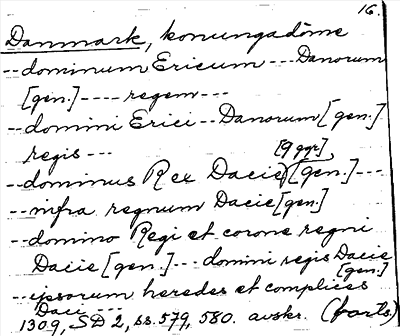 16.
Danmark, konungadöme
-- dominum Ericum --- Danorum
[gen.] ---- regem ---
-- domini Erici -- Danorum [gen.]
regis --- [9 ggr.]
-- dominus Rex Dacie [gen.] ---
-- infra regnum Dacie [gen.]
-- domino Regi et corone regni
Dacie [gen.] --- domini regis Dacie
[gen.]
-- ipsorum heredes et complices
Daci ---
1309, SD 2, ss. 579, 580. avskr. (forts.)